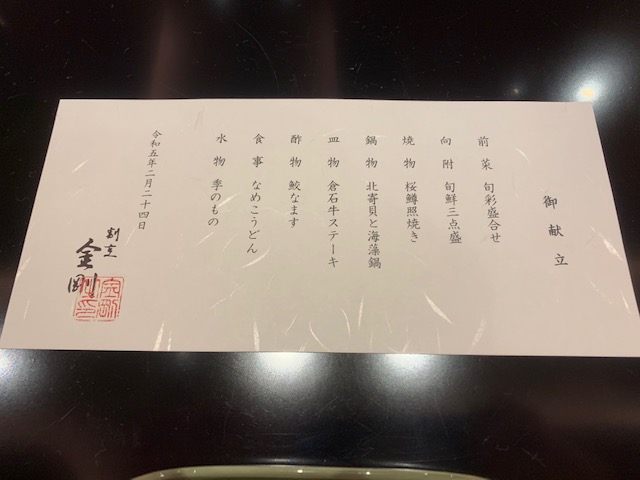 御献立
前菜 旬彩盛合せ
向附 旬鮮三点盛
焼物 桜鱒照焼き
鍋物 北寄貝と海藻鍋
皿物 倉石牛ステーキ
酢物 鮫なます
食事 なめこうどん
水物 季のもの
令和五年二月二十四日
割烹
金剛